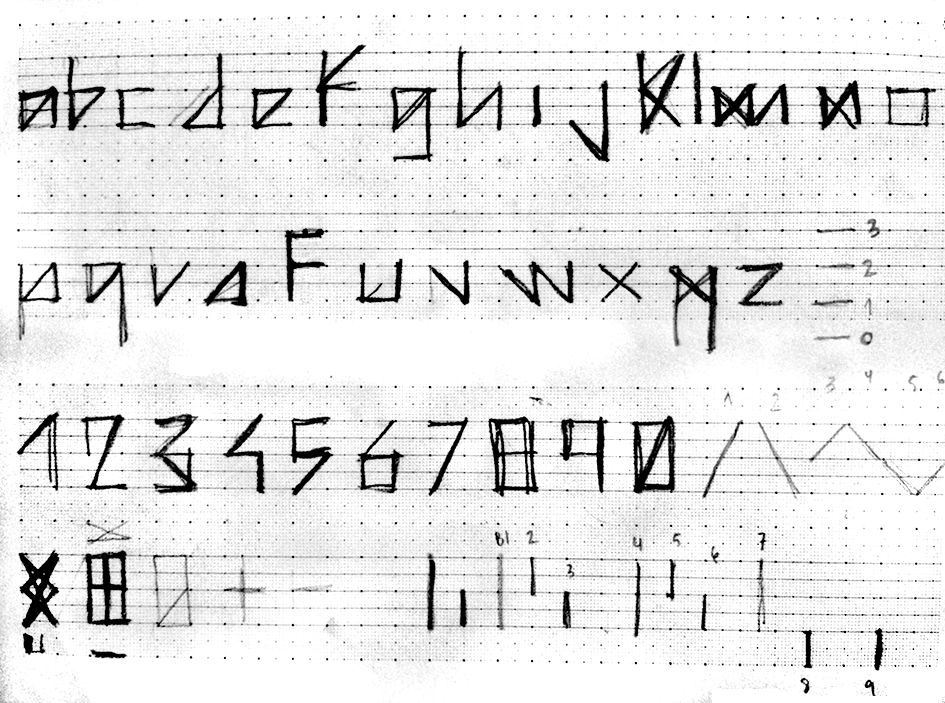 a b c d e f g h i j k l m n o
p q r s F u v w x y z 3
2
1
0
1 2 3 4 5 6 7 8 9 0 1 2 3 4 5 6
B1 2 3 4 5 6 7
8 9